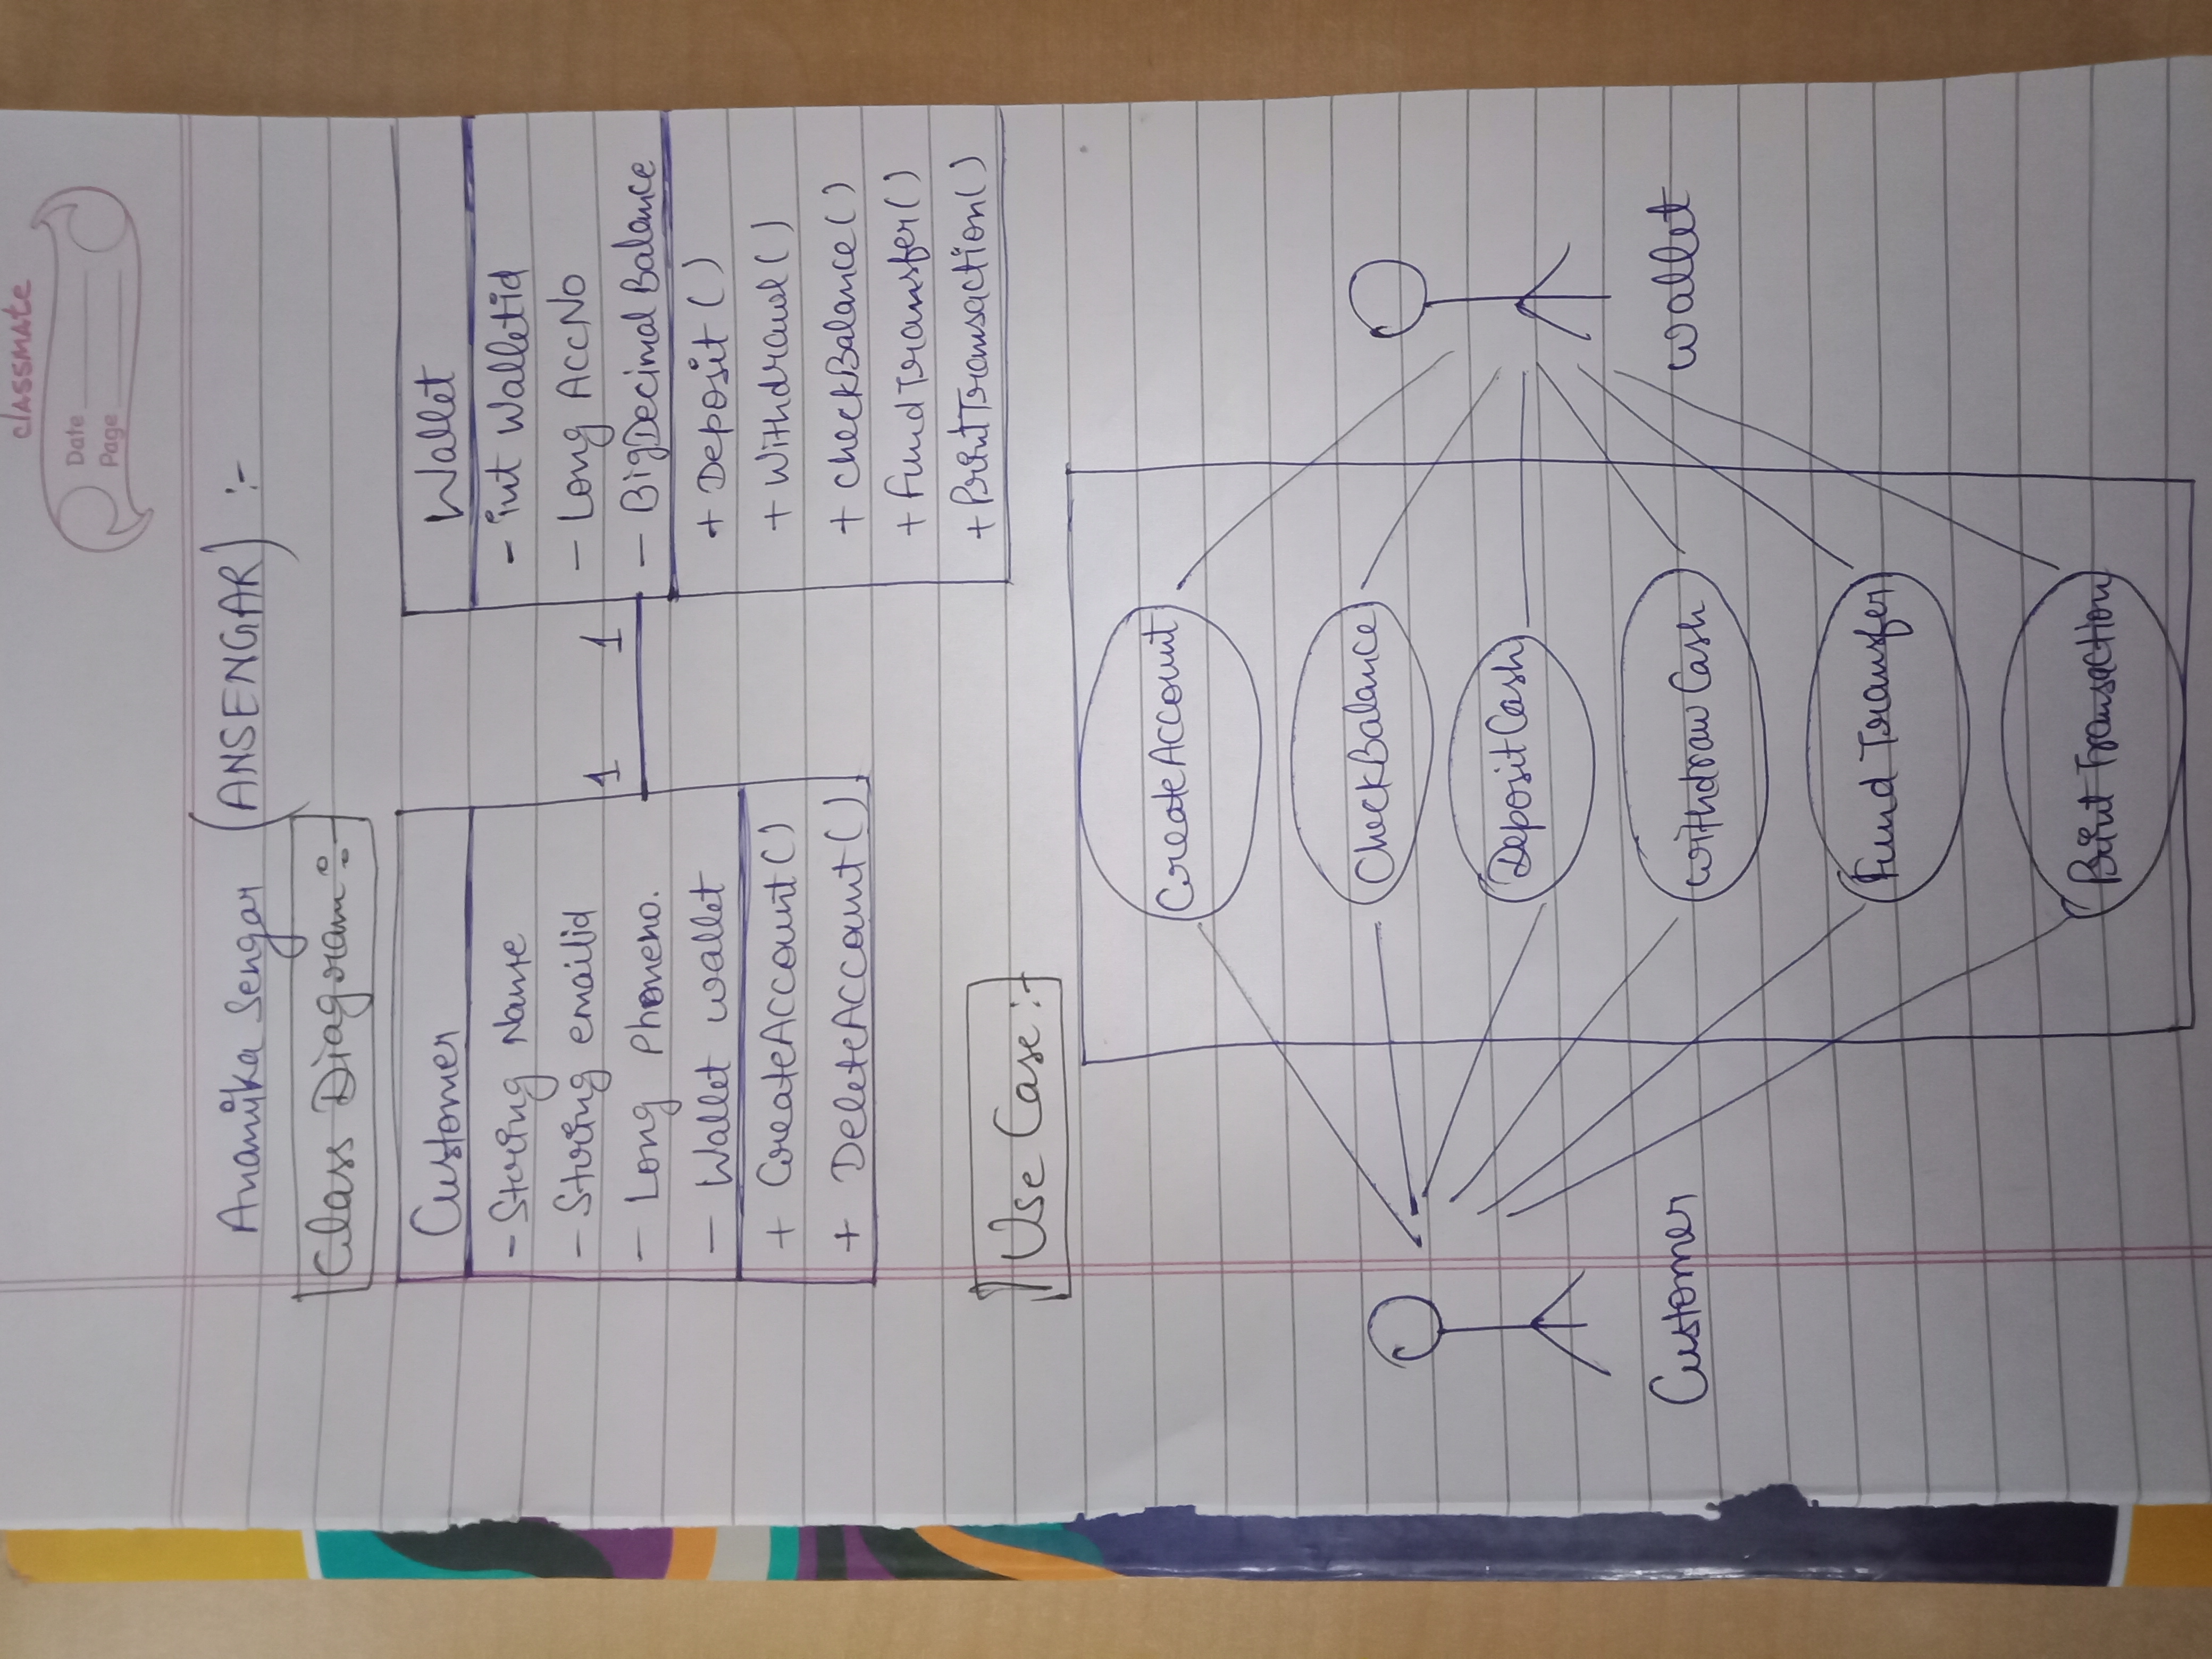 classmate
Date
Page
Anamika Sengar (ANSENGAR) :-
Class Diagram :-
Customer
- String Name
- String emailid
- Long Phoneno.
- Wallet wallet
+ CreateAccount()
+ DeleteAccount()
1 1
Wallet
- int Walletid
- Long AccNo
- BigDecimal Balance
+ Deposit()
+ Withdrawl()
+ checkBalance()
+ FundTransfer()
+ PrintTransaction()
Use Case :-
CreateAccount
CheckBalance
DepositCash
WithdrawCash
Fund Transfer
Print Transaction
Customer
wallet